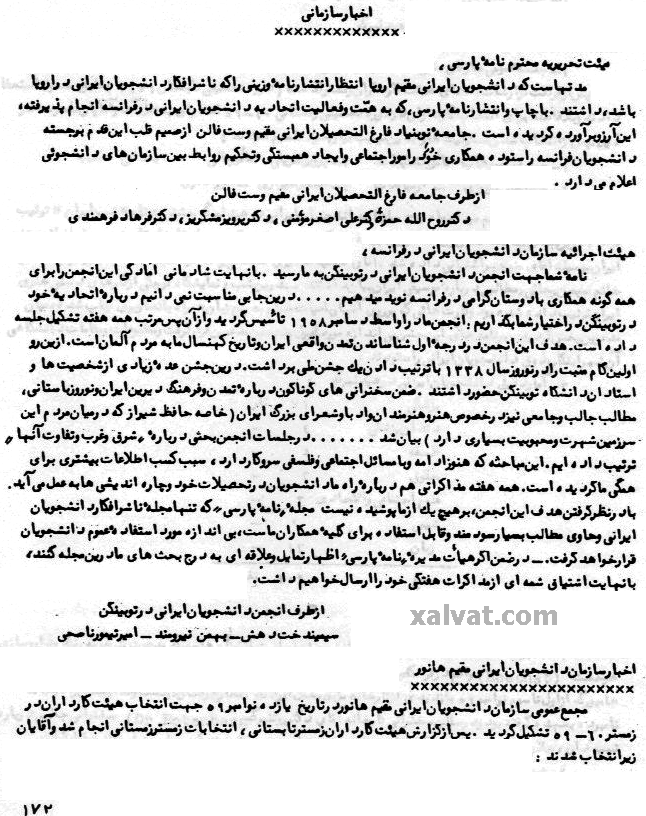 اخبار سازمانی
×××××××××××××
هیئت تحریریه محترم نامهٔ پارسی ،
مدتهاست که دانشجویان ایرانی مقیم اروپا انتظار انتشار نامهٔ وزینی را که ناشر افکار دانشجویان ایرانی در اروپا
باشد، داشتند . با چاپ و انتشار نامهٔ پارسی، که به همّت و فعالیت اتحادیه دانشجویان ایرانی در فرانسه انجام پذیرفته،
این آرزو برآورده گردیده است . جامعهٔ نوبنیاد فارغ التحصیلان ایرانی مقیم وست فالن از صمیم قلب این قدم برجسته
دانشجویان فرانسه را ستوده همکاری خود را در امور اجتماعی و ایجاد همبستگی و تحکیم روابط بین سازمان های دانشجوئی
اعلام می دارد .
از طرف جامعه فارغ التحصیلان ایرانی مقیم وست فالن
دکتر روح الله حمزهٔ دکتر علی اصغر مؤمنی ، دکتر پرویز مشگریز ، دکتر فرهاد فرهمندی
هیئت اجرائیه سازمان دانشجویان ایرانی در فرانسه ،
نامهٔ شما جهت انجمن دانشجویان ایرانی در توبینگن به ما رسید . با نهایت شادمانی آمادگی این انجمن را برای
همه گونه همکاری با دوستان گرامی در فرانسه نوید میدهیم ..... در این جا بی مناسبت نمی دانیم دربارهٔ اتحادیهٔ خود
در توبینگن در اختیار شما بگذاریم . انجمن ما در اواسط دسامبر ۱۹۵۸ تأسیس گردید و از آن پس مرتب همه هفته تشکیل جلسه
داده است . هدف این انجمن در درجهٔ اول شناساندن تمدن واقعی ایران و تاریخ کهنسال ما به مردم آلمان است . از این رو
اولین گام مثبت را در نوروز سال ۱۳۳۸ با ترتیب دادن یک جشن ملی برداشت . در این جشن عدهٔ زیادی از شخصیت ها و
استادان دانشگاه توبینگن حضور داشتند . ضمن سخنرانی های گوناگون دربارهٔ تمدن و فرهنگ دیرین ایران و نوروز باستانی ،
مطالب جالب و جامعی نیز در خصوص هنر و هنرمندان و ادبا و شعرای بزرگ ایران ( خاصه حافظ شیراز که در میان مردم این
سرزمین شهرت و محبوبیت بسیاری دارد ) بیان شد ....... در جلسات انجمن بحثی دربارهٔ " شرق و غرب و تفاوت آنها "
ترتیب داده ایم . این مباحثه که هنوز ادامه و با مسائل اجتماعی و فلسفی سر و کار دارد ، سبب کسب اطلاعات بیشتری برای
همگی ما گردیده است . همه هفته مذاکراتی هم دربارهٔ راه ما دانشجویان در تحصیلات خود و چاره اندیشی ها به عمل می آید .
با در نظر گرفتن هدف این انجمن ، بر هیچ یک از ما پوشیده نیست مجلهٔ " نامهٔ پارسی " که تنها مجلهٔ ناشر افکار دانشجویان
ایرانی و حاوی مطالب بسیار سودمند و قابل استفاده برای کلیهٔ همکاران ماست، بی اندازه مورد استفادهٔ عموم دانشجویان
قرار خواهد گرفت . ــ در ضمن اگر هیأت مدیرهٔ " نامهٔ پارسی " اظهار تمایل و علاقه ای به درج بحث های ما در این مجله کنند ،
با نهایت اشتیاق شمه ای از مذاکرات هفتگی خود را ارسال خواهیم داشت .
از طرف انجمن دانشجویان ایرانی در توبینگن
سیمیندخت دهش ــ بهمن نیرومند ــ امیرتیمور ناصحی
xalvat.com
اخبار سازمان دانشجویان ایرانی مقیم هانور
×××××××××××××××××××××××
مجمع عمومی سازمان دانشجویان ایرانی مقیم هانور در تاریخ یازده نوامبر ۵۹ جهت انتخاب هیئت کارداران در
زمستر ۶۰ ــ ۵۹ تشکیل گردید . پس از گزارش هیئت کارداران زمستر تابستانی ، انتخابات زمستر زمستانی انجام شد و آقایان
زیر انتخاب شدند :
۱۷۲